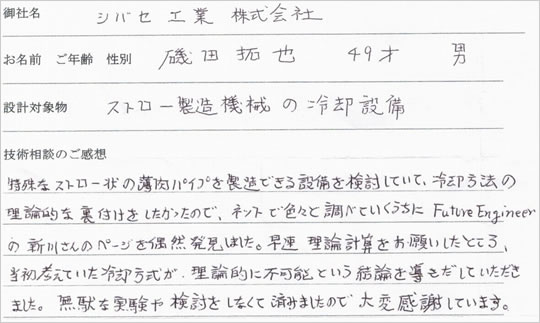 御社名 シバセ工業 株式会社
お名前 ご年齢 性別 磯田拓也 49才 男
設計対象物 ストロー製造機械の冷却設備
技術相談のご感想
特殊なストロー状の薄肉パイプを製造できる設備を検討していて、冷却方法の
理論的な裏付けをしたかったので、ネットで色々と調べていくうちに Future Engineer
の新川さんのページを偶然発見しました。早速 理論計算をお願いしたところ、
当初考えていた冷却方式が、理論的に不可能という結論を導きだしていただき
ました。無駄な実験や検討をしなくて済みましたので大変感謝しています。